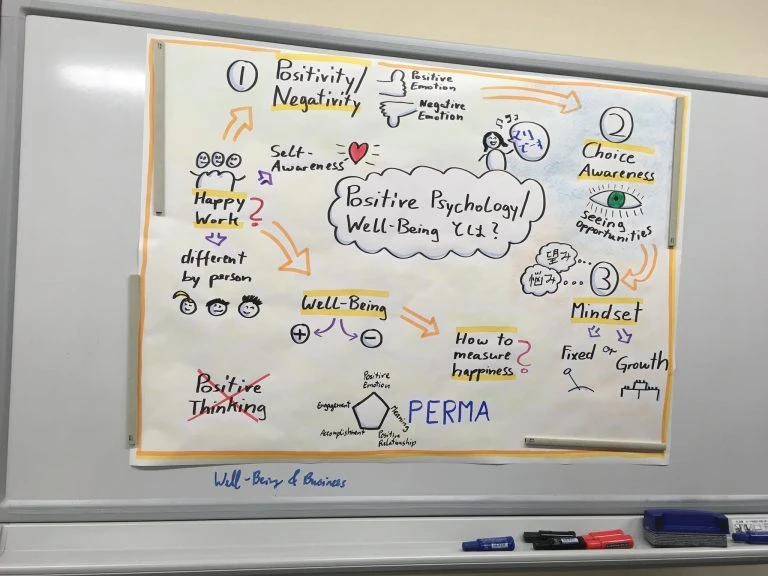 Positive Psychology/
Well-Being とは?
①
Positivity/
Negativity
Positive
Emotion
Negative
Emotion
②
Choice
Awareness
seeing
opportunities
望み
悩み
③
Mindset
Fixed or Growth
Self-
Awareness
Happy
Work?
different
by person
Well-Being
+
-
How to
measure
happiness?
Positive
Thinking
Positive
Emotion
Engagement
Meaning
Accomplishment
Positive
Relationship
PERMA
Well-Being & Business